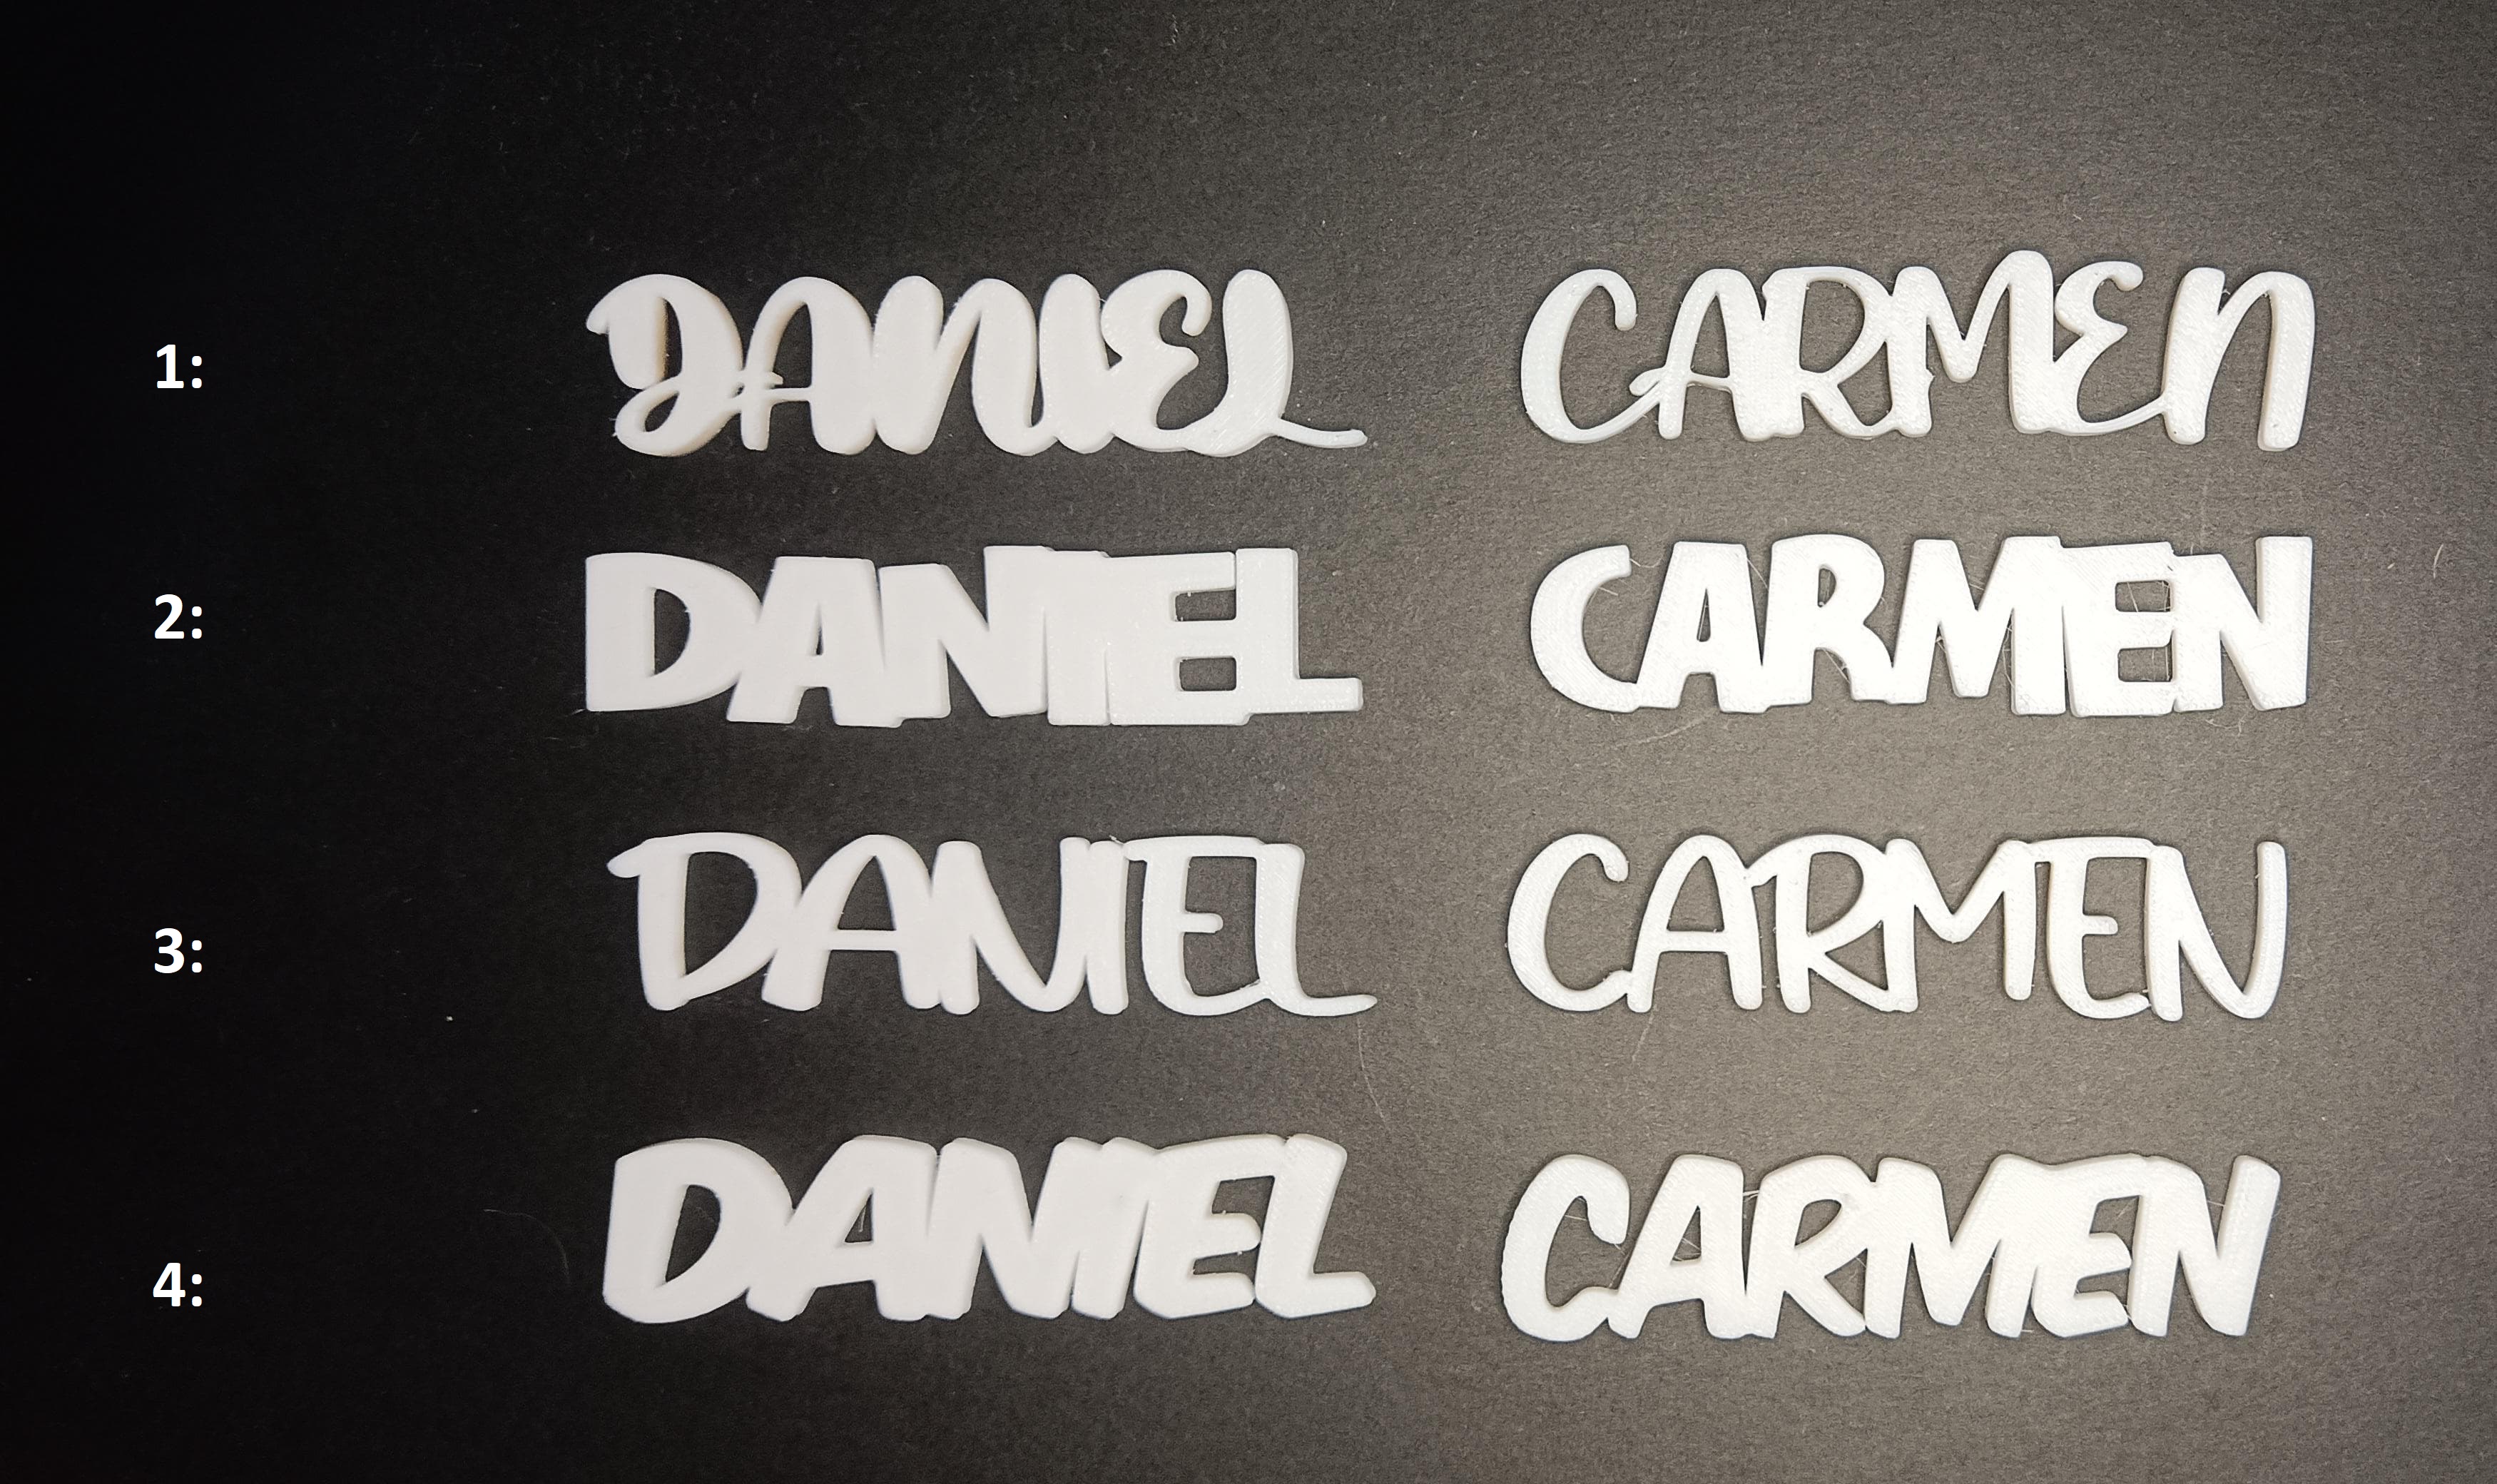 1: DANIEL CARMEN
2: DANIEL CARMEN
3: DANIEL CARMEN
4: DANIEL CARMEN